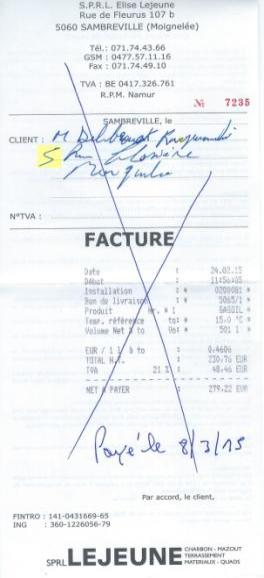 S.P.R.L. Elise Lejeune
Rue de Fleurus 107 b
5060 SAMBREVILLE (Moignelée)
Tél.: 071.74.43.66
GSM : 0477.57.11.16
Fax : 071.74.49.10
TVA : BE 0417.326.761
R.P.M. Namur
№ 7235
SAMBREVILLE, le
CLIENT : M
5 Rue
N°TVA :
FACTURE
Date : 24.02.15
Début : 11:56:05
Installation : * 0200081 *
Bon de livraison : * 5065/1 *
Produit Nr. * 1 GASOIL *
Temp. référence to: * 15.0 °C *
Volume Net à to Vo: * 501 l *
EUR / 1 l à to : 0.4606
TOTAL H.T. : 230.76 EUR
TVA 21 % : 48.46 EUR
NET A PAYER : 279.22 EUR
Payé le 8/3/15
Par accord, le client,
FINTRO : 141-0431669-65
ING : 360-1226056-79
SPRL LEJEUNE CHARBON - MAZOUT
TERRASSEMENT
MATERIAUX - QUADS